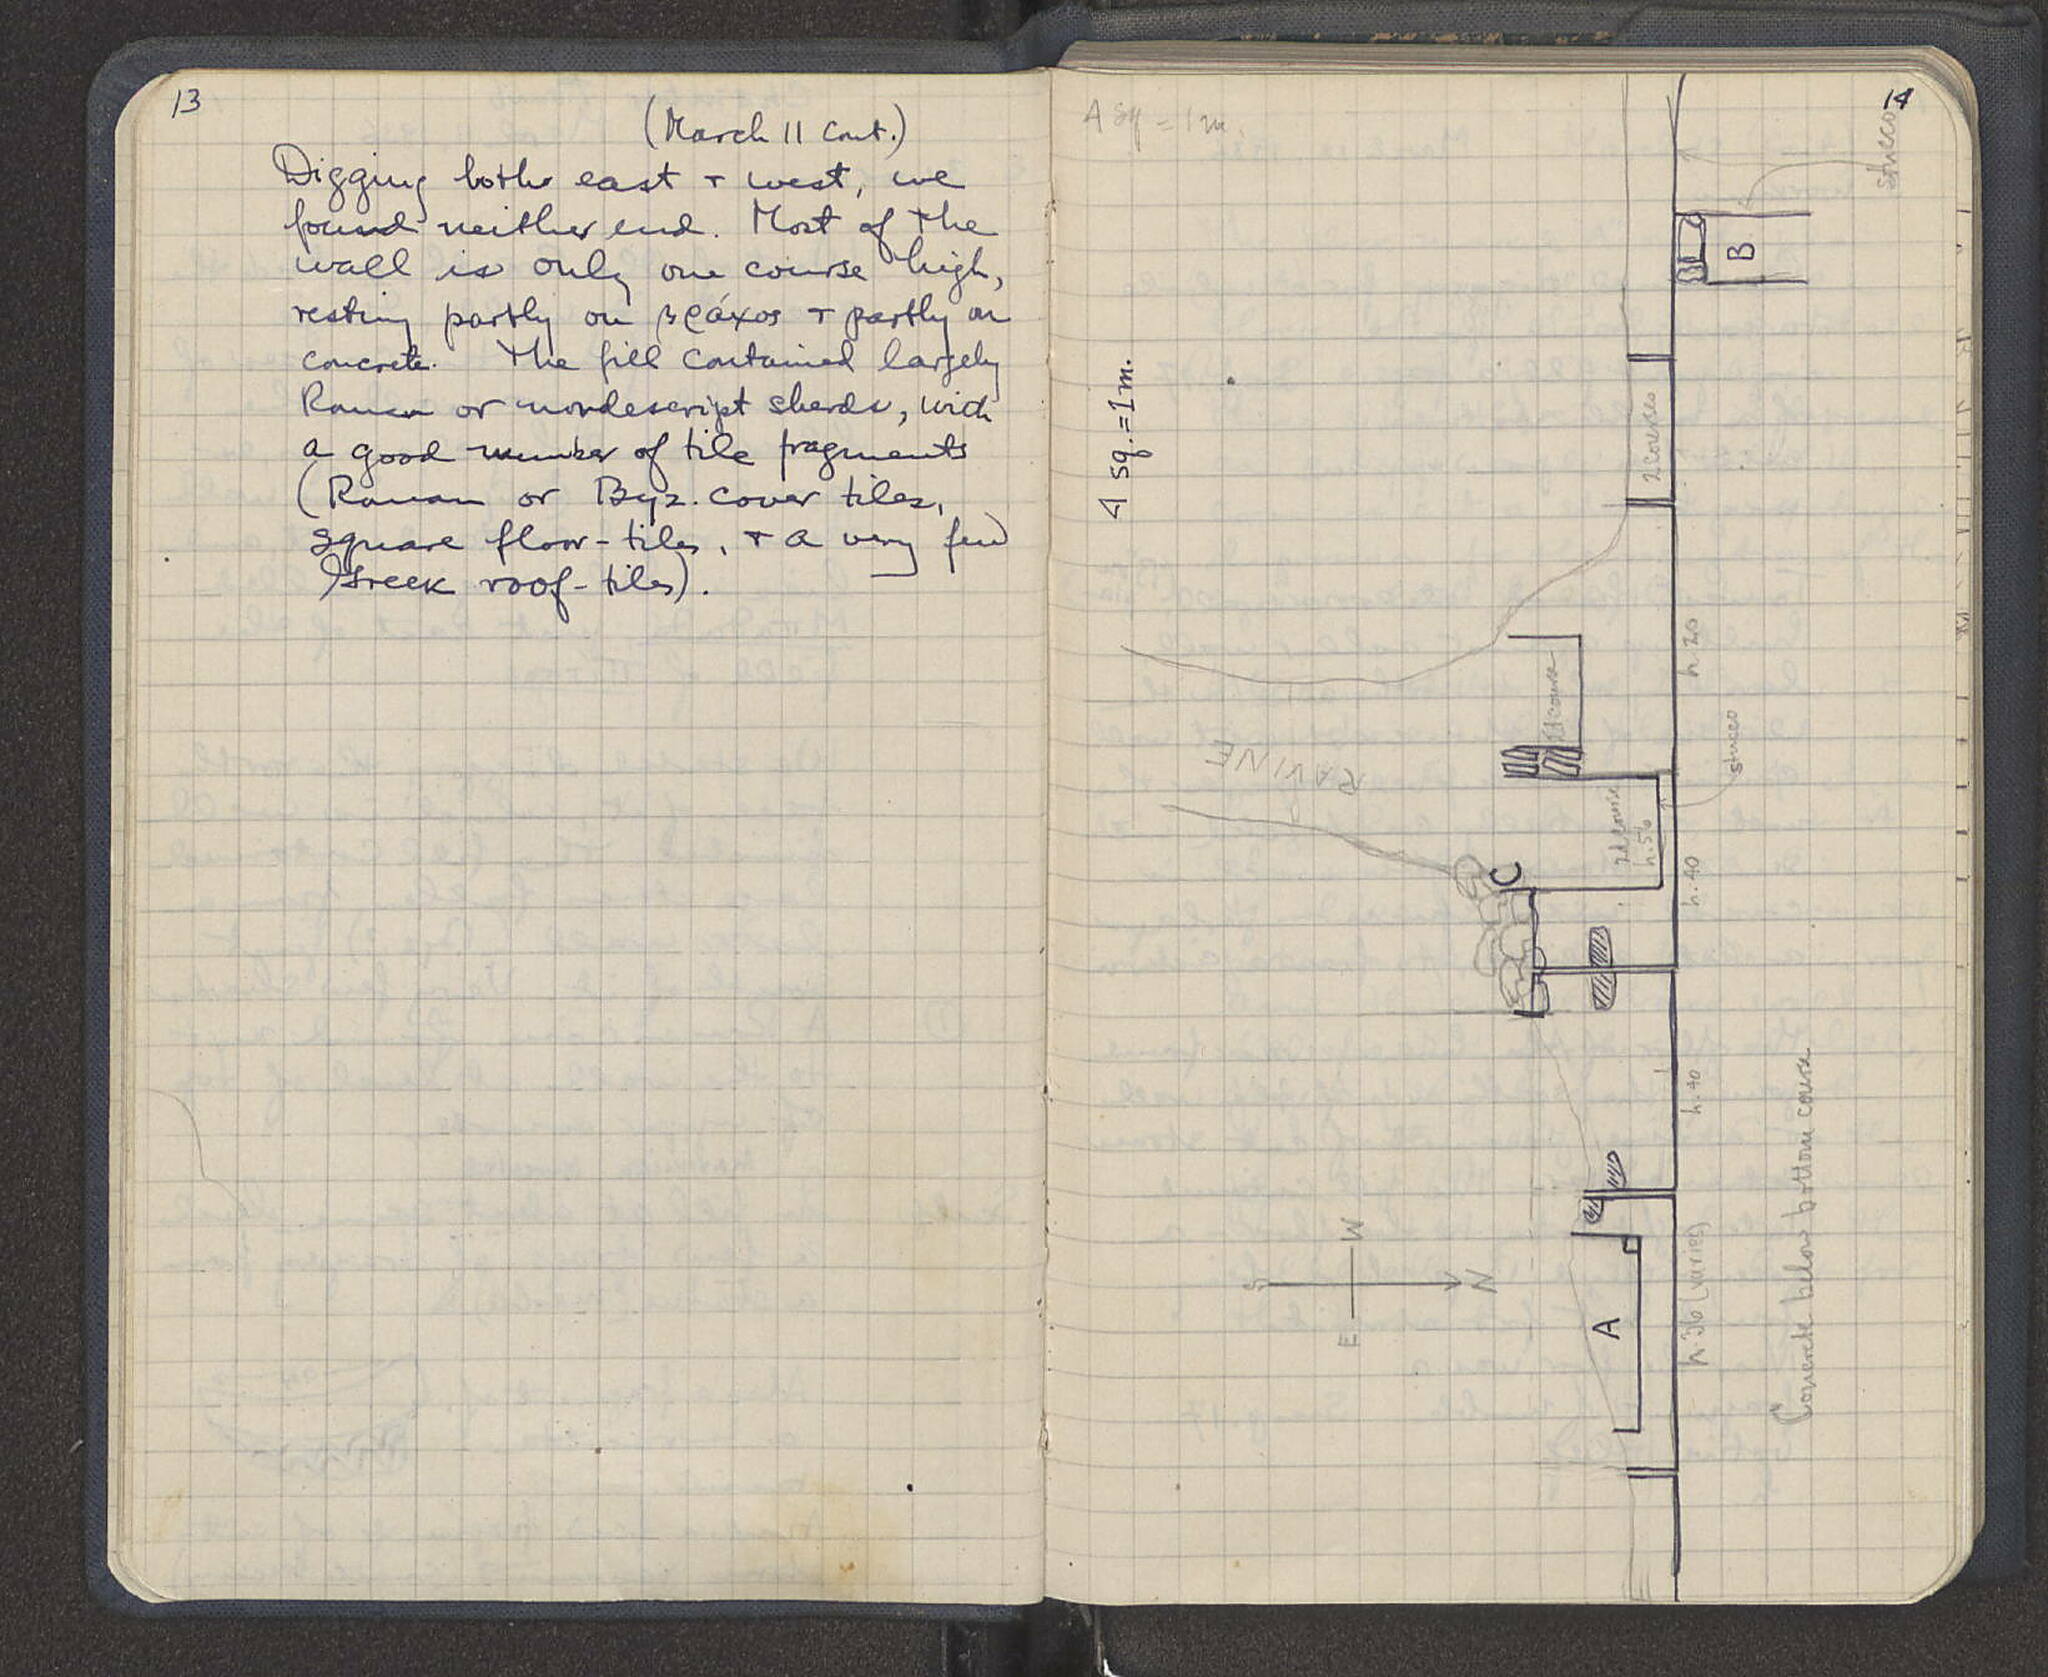 13
(March 11 cont.)
Digging both east + west, we
found neither end. Most of the
wall is only one course high,
resting partly on βράχος + partly on
concrete. The fill contained largely
Roman or nondescript sherds, with
a good number of tile fragments
(Roman or Byz. cover tiles,
square floor-tiles, + a very few
Greek roof-tiles).
14
4 sq = 1 m.
stucco
B
4 sq. = 1m.
2 courses
h .20
2d course
stucco
RAVINE
2d course
h .56
C
h .40
h .40
S
W
E
N
A
h .36 (varies)
Concrete below bottom course